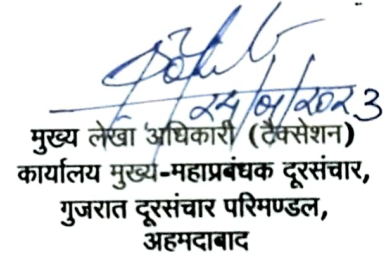 मुख्य लेखा अधिकारी (टैक्सेशन)
कार्यालय मुख्य-महाप्रबंधक दूरसंचार,
गुजरात दूरसंचार परिमण्डल,
अहमदाबाद